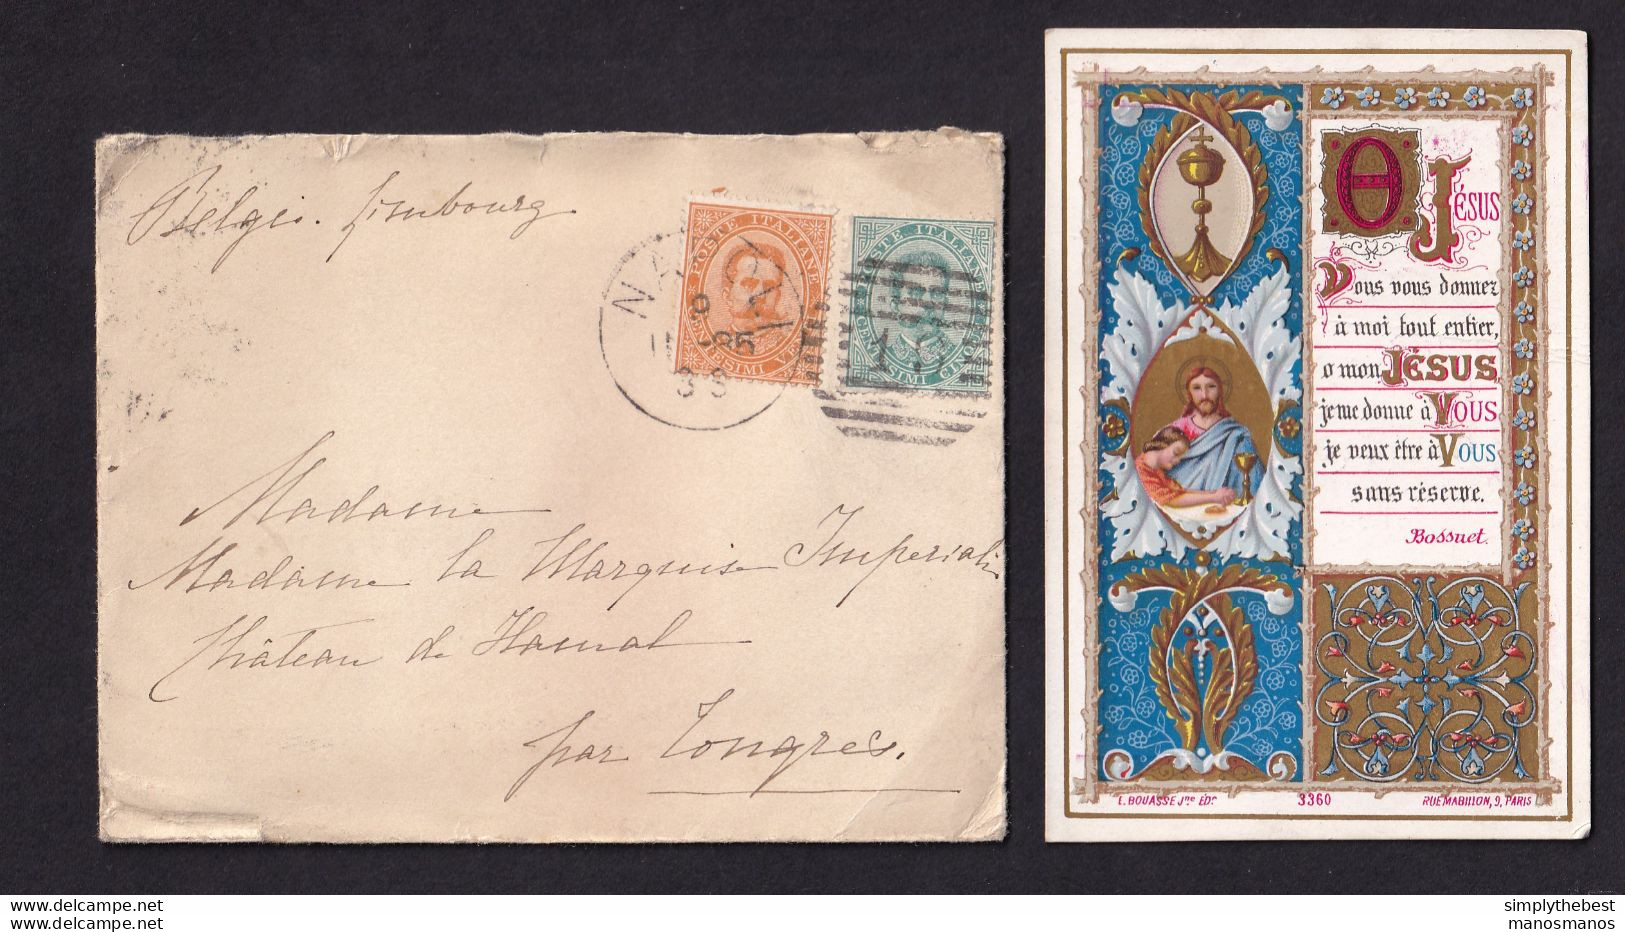 Belgio. Limbourg
POSTE ITALIANE
POSTE ITALIANE
NAPOLI
9
85
3 S
Madame
Madame la Marquise Imperiali
Château de Hamal
par Tongres.
O JÉSUS
Vous vous donnez
à moi tout entier,
o mon JÉSUS,
je me donne à VOUS
je veux être à VOUS
sans réserve.
Bossuet.
L. BOUASSE Jne ÉDr
3360
RUE MABILLON, 9, PARIS
https://www.delcampe.net
https://www.delcampe.net
simplythebest
manosmanos